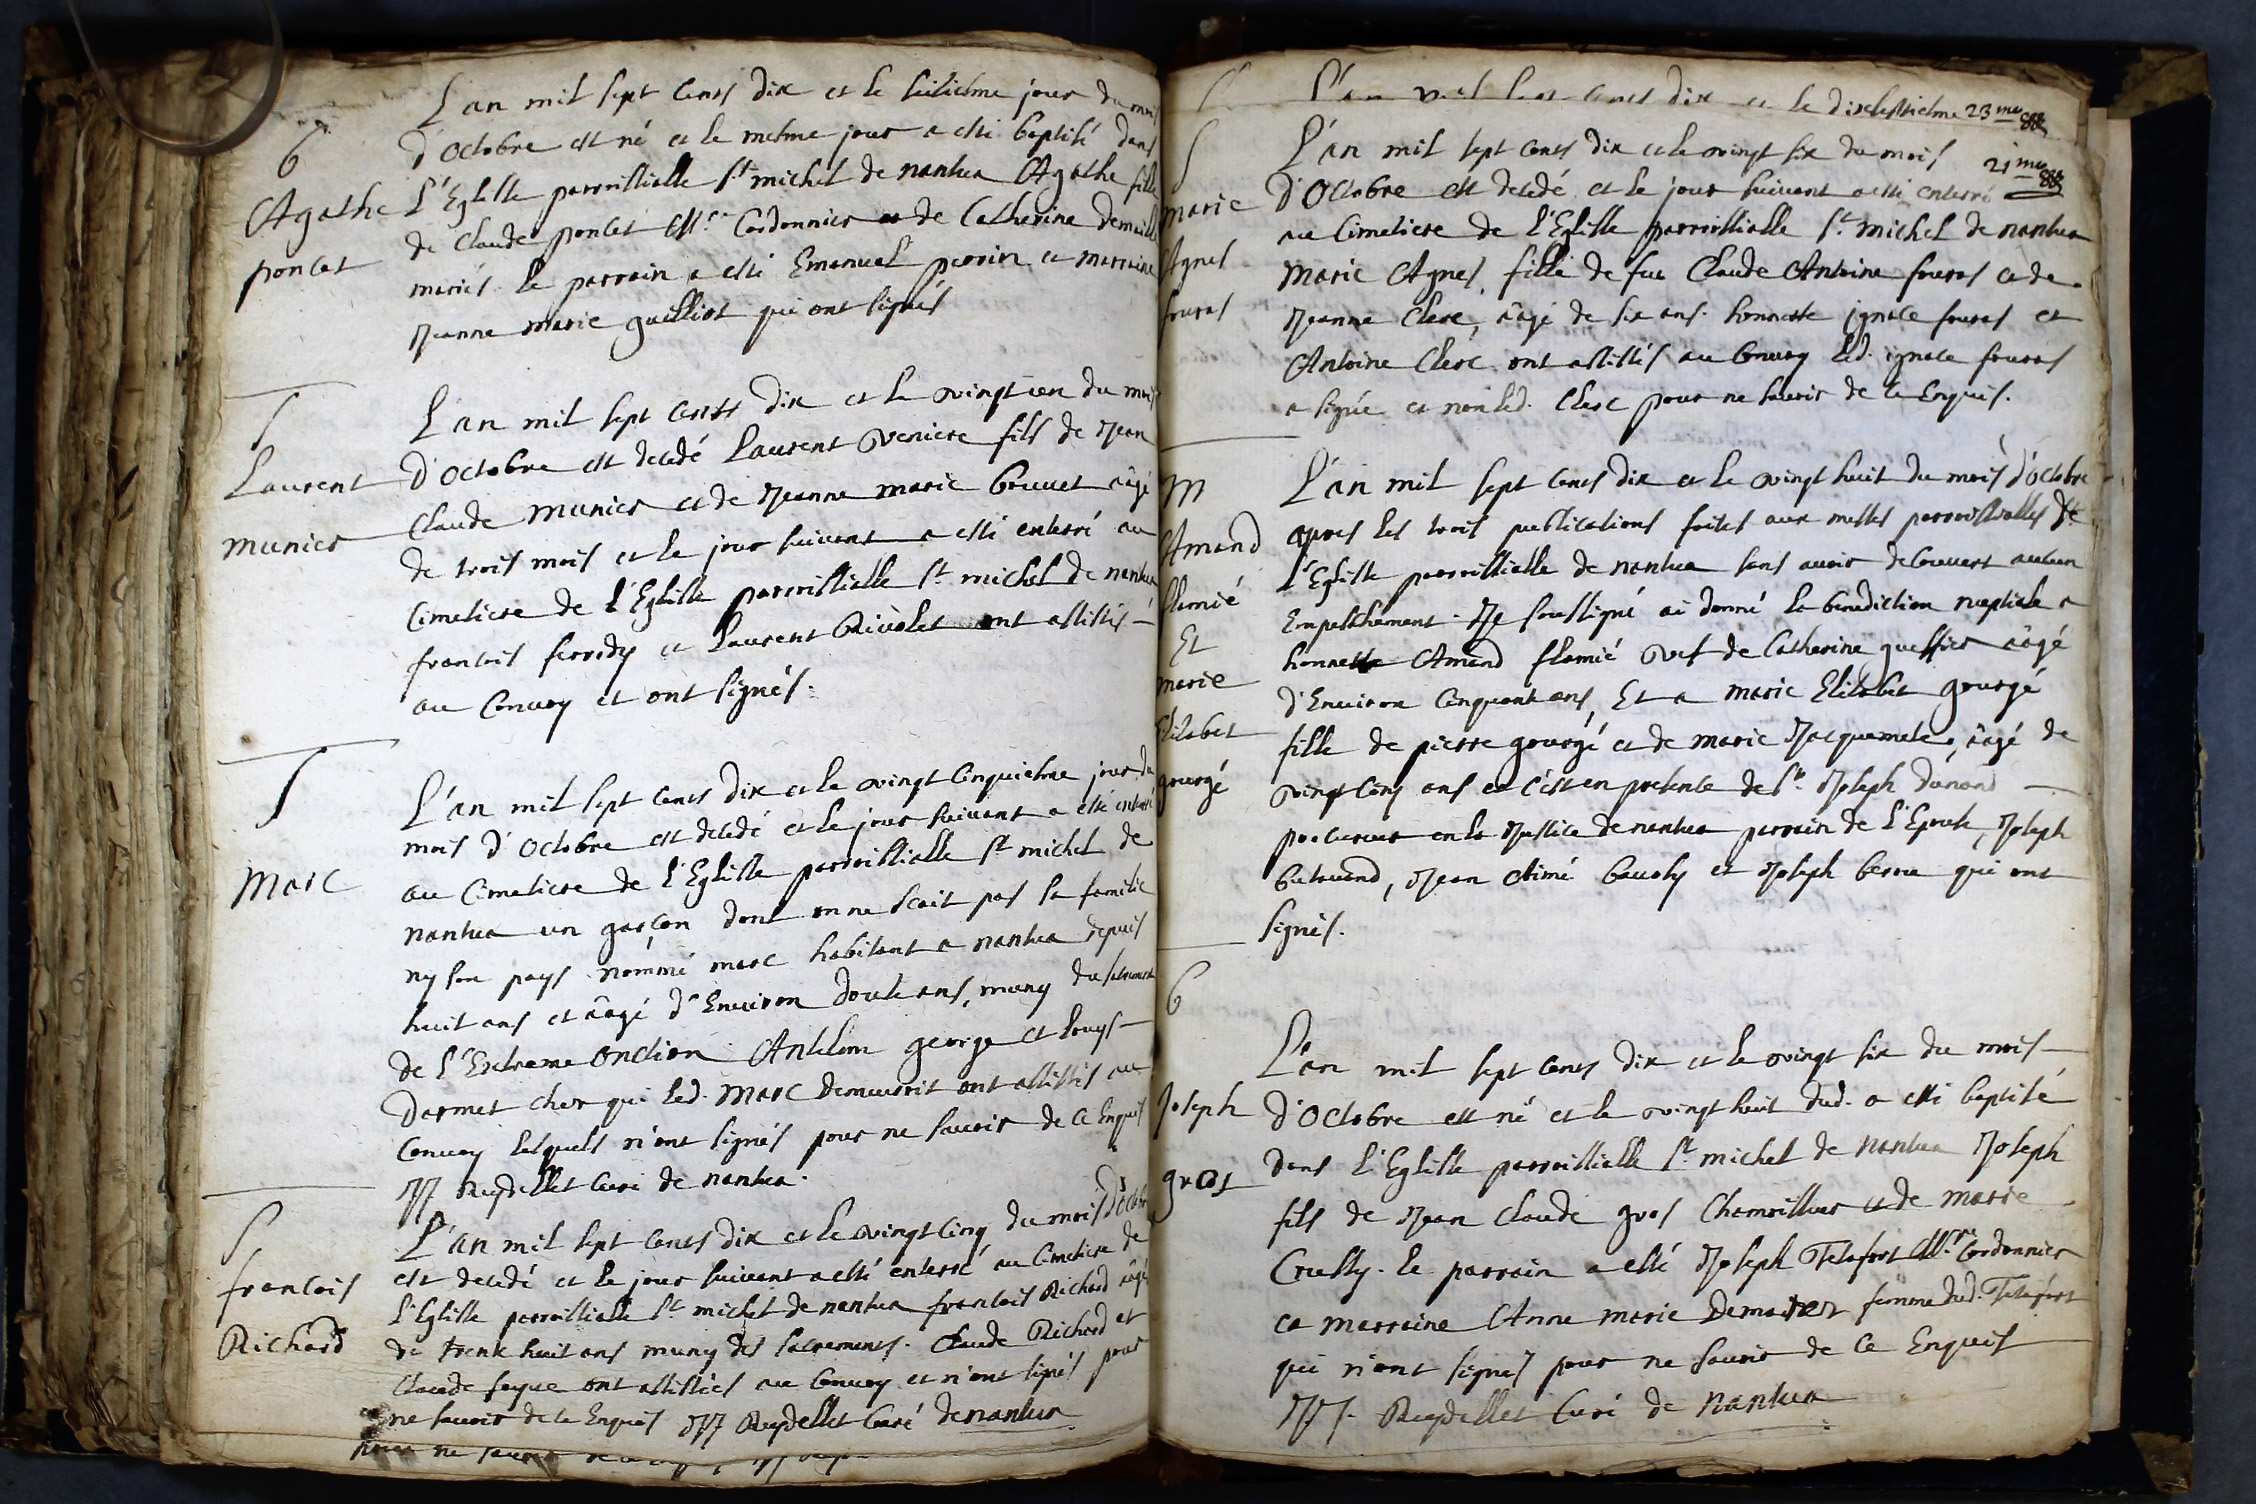 L'an mil sept cents dix et le seizieme jour du mois
d'Octobre est né et le mesme jour a esté baptisé dans
l'Eglisse parroissialle st michel de nantua Agathe fille
de Claude poncet Me. Cordonnier et de Catherine
mariés. le parrain a esté Emanuel perrin et marraine
Jeanne marie guilliot qui ont signés
B
Agathe
poncet
L'an mil sept cents dix et le vingt un du mois
d'octobre est decedé Laurent fils de Jean
Claude munier et de Jeanne marie âagé
de trois mois et le jour suivant a esté enterré au
Cimetiere de l'Eglisse parroissialle st. michel de nantua
francois ferrody et Laurent Rivolet ont assistés
au Convoy et ont signés.
S
Laurent
munier
L'an mil sept cents dix et le vingt cinquiesme jour du
mois d'Octobre est decedé et le jour suivant a esté enterré
au Cimetiere de l'Eglisse parroissialle st michel de
nantua un garçon dont on ne scait pas la famille
ny son pays nommé marc habitant a nantua depuis
huit ans et âagé d'Environ douze ans, muny du sacrement
de l'Extreme onction. Anthelme george et Louys
Darmet chez qui led. marc demeuroit ont assistés au
Convoy lesquels n'ont signés pour ne savoir de ce Enquis
JJ Reydellet Curé de nantua.
S
Marc
L'an mil sept cents dix et le vingt cinq du mois d'Octobre
est decedé et le jour suivant a esté enterré au Cimetiere de
l'Eglisse parroissialle st michel de nantua francois Richard âagé
de trente huit ans muny des sacrements. Claude Richard et
Claude ont assistés au Convoy et n'ont signés pour
ne savoir de ce Enquis JJ Reydellet Curé de nantua
S
francois
Richard
L'an mil sept cents dix et le 23me
L'an mil sept cents dix et le vingt six du mois 21me
d'Octobre est decedé et le jour suivant a esté enterré
au Cimetiere de l'Eglisse parroissialle st. michel de nantua
marie Agnes fille de feu Claude Antoine fouras et de
Jeanne Clerc, âagé de six ans. honneste ignace fouras et
Antoine Clerc ont assistés au Convoy led. ignace fouras
a signé et non led. Clerc pour ne savoir de ce Enquis.
S
marie
Agnes
fouras
L'an mil sept cents dix et le vingt huit du mois d'Octobre
apres les trois publications faites aux messes parroissialles de
l'Eglisse parroissialle de nantua sans avoir decouvert aucun
Empeschement. Je soussigné ai donné la benediction nuptiale a
honneste Amand flamié vef de Catherine âagé
d'Environ cinquante ans, Et a marie Elizabet gourgé
fille de pierre gourgé et de marie Jacquemet, âagé de
vingt cinq ans et c'est en presence de sr. Joseph dunand
procureur en la Justice de nantua parrain de l'Epouse, Joseph
butavand, Jean Aimé baudy et Joseph berne qui ont
signés.
m
Amand
flamié
Et
marie
Elizabet
gourgé
L'an mil sept cents dix et le vingt six du mois
d'Octobre est né et le vingt huit dud. a esté baptisé
dans l'Eglisse parroissialle st. michel de nantua Joseph
fils de Jean Claude gros Chamoisseur et de marie
Crussy. le parrain a esté Joseph Telafort Me. Cordonnier
et marraine Anne marie femme dud. Telafort
qui n'ont signés pour ne savoir de ce Enquis
JJ. Reydellet Curé de nantua
B
Joseph
gros